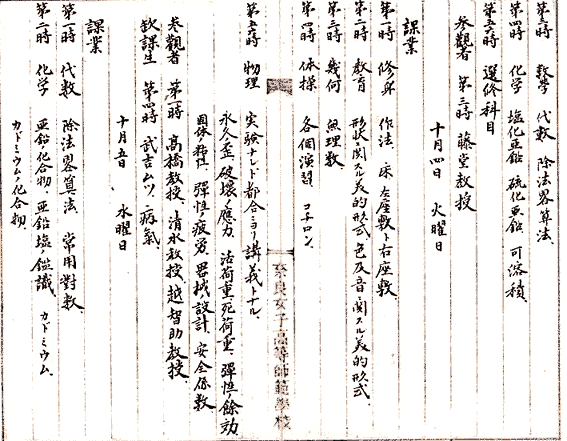 第三時 数学 代数 除法畧算法、
第四時 化学 塩化亜鉛 硫化亜鉛 可溶積、
第五時 選修科目
参観者 第三時 藤堂教授
十月四日 火曜日
課業
第一時 修身 作法、床、左座敷ト右座敷、
第二時 教育 形状ニ関スル美的形式 色及音ニ関スル美的形式
第三時 幾何 無理数、
第四時 体操 各個演習、コチロン、
奈良女子高等師範學校
第五時 物理 実験ナレド都合ニヨリ講義トナル、
永久歪、破壊ノ應力 活荷重、死荷重、彈性ノ餘効
固体ノ粘性、彈性ノ疲労、器械設計 安全係数、
参観者 第一時 高橋教授、清水教授、越智助教授、
欽課生 第四時 武吉ムツ 病氣
十月五日 水曜日
課業
第一時 代数 除法畧算法 常用対数、
第二時 化学 亜鉛ノ化合物、亜鉛塩ノ鑑識、カドミウム、
カドミウムノ化合物